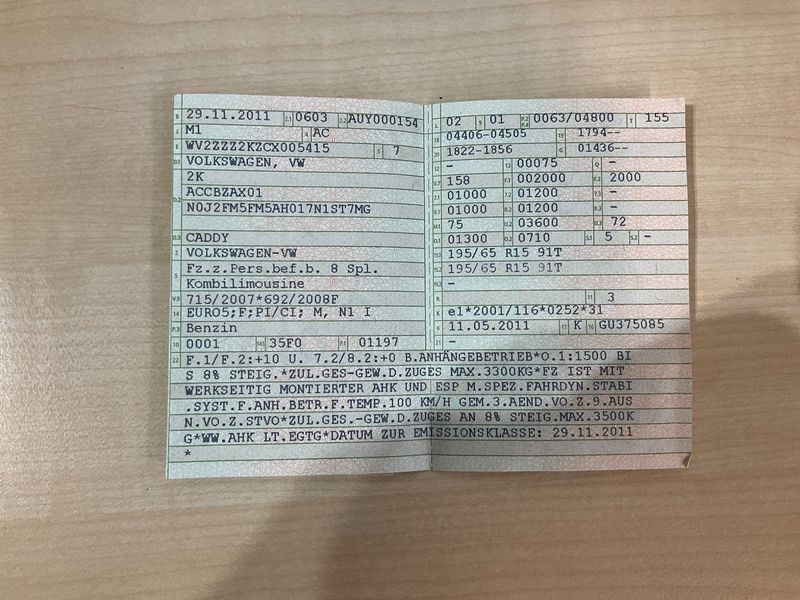 B 29.11.2011 2.1 0603 2.2 AUY000154
J M1 4 AC
E WV2ZZZ2KZCX005415 3 7
D.1 VOLKSWAGEN, VW
2K
D.2 ACCBZAX01
N0J2FM5FM5AH017N1ST7MG
D.3 CADDY
2 VOLKSWAGEN-VW
5 Fz.z.Pers.bef.b. 8 Spl.
Kombilimousine
V.9 715/2007*692/2008F
14 EURO5;F;PI/CI; M, N1 I
P.3 Benzin
10 0001 14.1 35F0 P.1 01197
L 02 9 01 P.2 P.4 0063/04800 T 155
18 04406-04505 19 1794--
20 1822-1856 G 01436--
12 - 13 00075 Q -
V.7 158 F.1 002000 F.2 2000
7.1 01000 7.2 01200 7.3 -
8.1 01000 8.2 01200 8.3 -
U.1 75 U.2 03600 U.3 72
O.1 01300 O.2 0710 S.1 5 S.2 -
15.1 195/65 R15 91T
15.2 195/65 R15 91T
15.3 -
R 11 3
K e1*2001/116*0252*31
6 11.05.2011 17 K 16 GU375085
21 -
22 F.1/F.2:+10 U. 7.2/8.2:+0 B.ANHÄNGEBETRIEB*O.1:1500 BI
S 8% STEIG.*ZUL.GES-GEW.D.ZUGES MAX.3300KG*FZ IST MIT
WERKSEITIG MONTIERTER AHK UND ESP M.SPEZ.FAHRDYN.STABI
.SYST.F.ANH.BETR.F.TEMP.100 KM/H GEM.3.AEND.VO.Z.9.AUS
N.VO.Z.STVO*ZUL.GES.-GEW.D.ZUGES AN 8% STEIG.MAX.3500K
G*WW.AHK LT.EGTG*DATUM ZUR EMISSIONSKLASSE: 29.11.2011
*